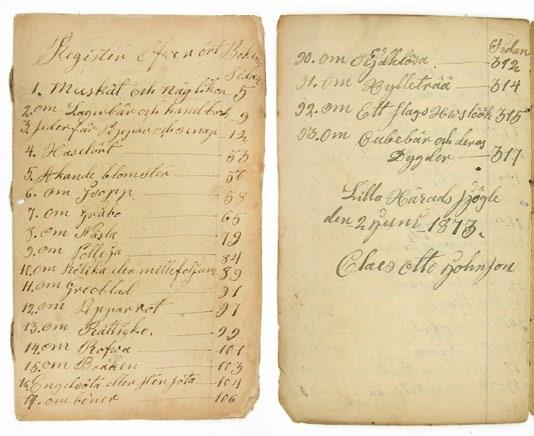 Register öfwer ört Boken
Sidan
1. Muskåt och Näglikor 5
2. om Lagerbär och 9
3. Peppar och Senap 12
4. Haselört 53
5. Akande blomster 56
6. om Isopp 58
7. om gråbo 65
8. om Nässla 79
9. om Polleja 84
10. om Rölika eller millefolium 89
11. om Groblad 91
12. om Pepparrot 97
13. om Rätticke. 99
14. om Rofwa 101
15. om Bräken 103
16. Engelsöta eller Stensöta 104
17. om bönor 106
Sidan
90. om 312
91. om Hylleträä 314
92. om Ett slags Huslök 315
93. om Cubebär och deras
Dygder 317
Lilla Härads Skögle
den 2 Juni 1873.
Claes Otto Johnson